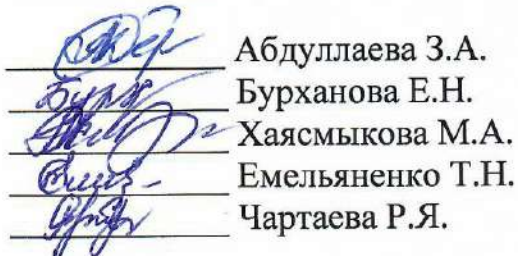 Абдуллаева З.А.
Бурханова Е.Н.
Хаясмыкова М.А.
Емельяненко Т.Н.
Чартаева Р.Я.